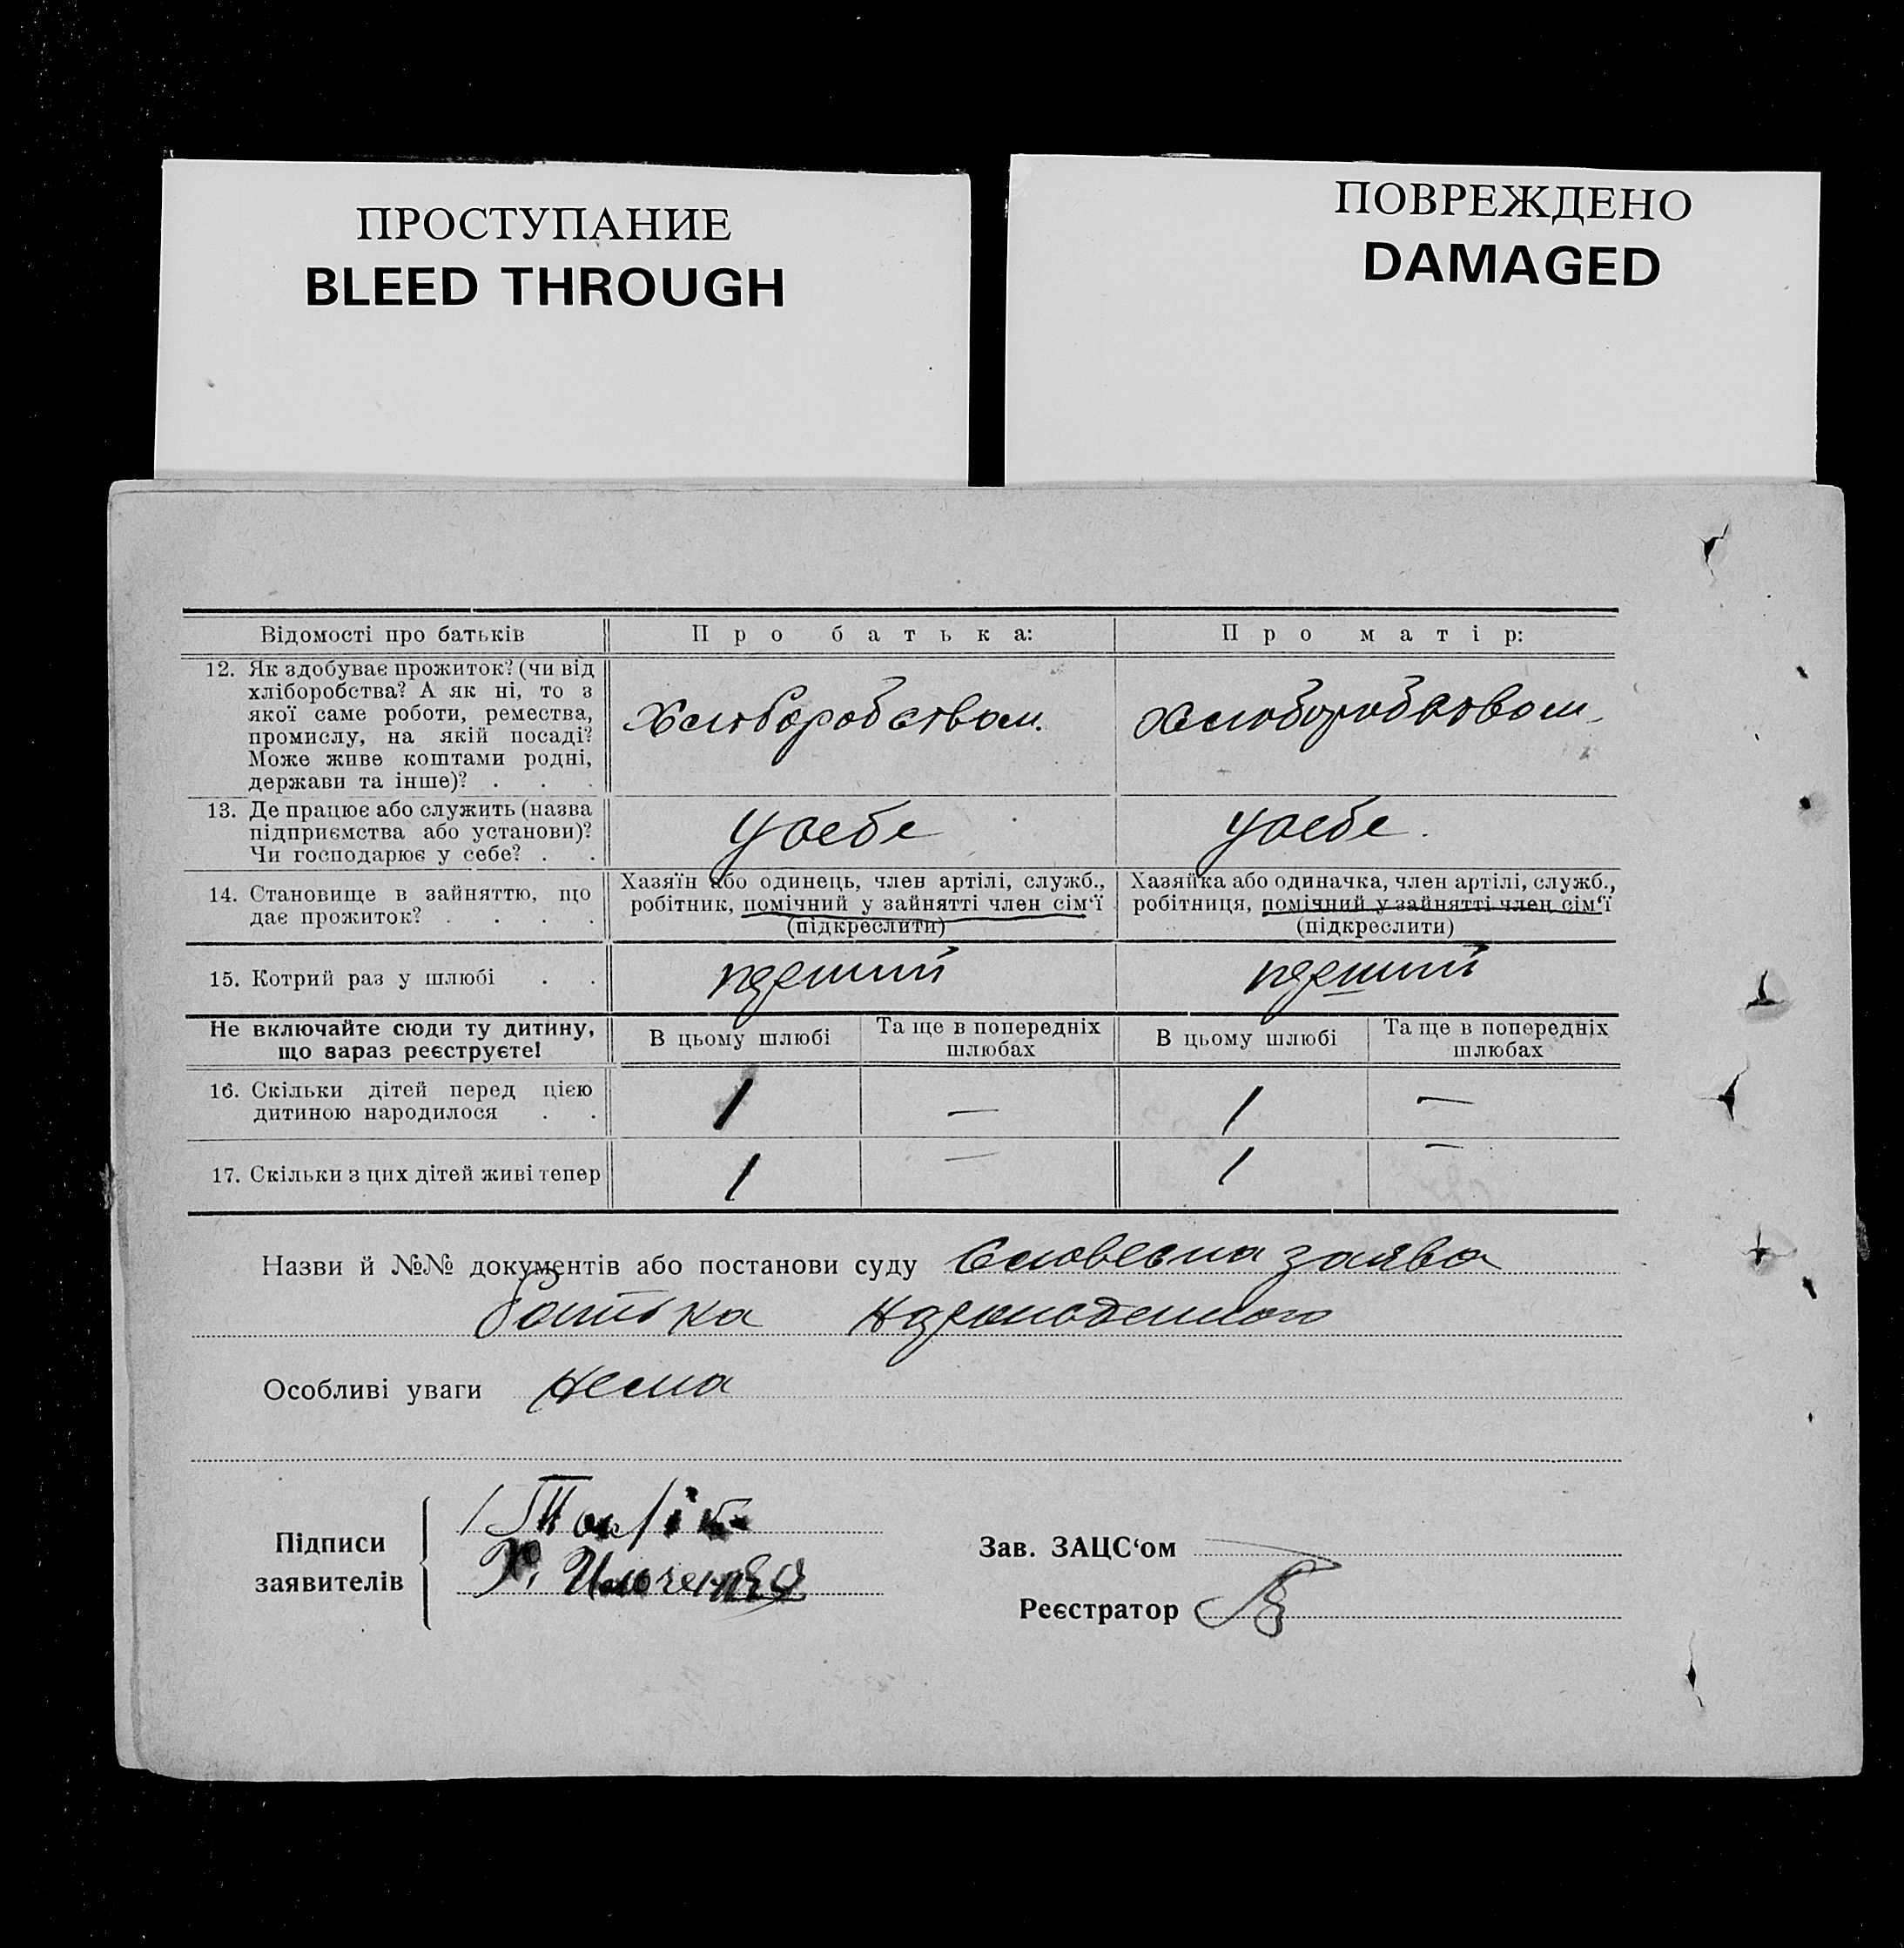 ПРОСТУПАНИЕ
BLEED THROUGH
ПОВРЕЖДЕНО
DAMAGED
Відомості про батьків
Про батька:
Про матір:
12. Як здобуває прожиток? (чи від
хліборобства? А як ні, то з
якої саме роботи, ремества,
промислу, на якій посаді?
Може живе коштами родні,
держави та інше)? . . .
Хлюборобством.
Хлюборобством
13. Де працює або служить (назва
підприємства або установи)?
Чи господарює у себе? . .
усебе
усебе.
14. Становище в зайняттю, що
дає прожиток? . . . .
Хазяїн або одинець, член артілі, служб.,
робітник, помічний у зайнятті член сім‘ї
(підкреслити)
Хазяйка або одиначка, член артілі, служб.,
робітниця, помічний у зайнятті член сім‘ї
(підкреслити)
15. Котрий раз у шлюбі . .
перший
перший
Не включайте сюди ту дитину,
що зараз реєструєте!
В цьому шлюбі
Та ще в попередніх
шлюбах
В цьому шлюбі
Та ще в попередніх
шлюбах
16. Скільки дітей перед цією
дитиною народилося . .
1 — 1 —
17. Скільки з цих дітей живі тепер
1 — 1 —
Назви й №№ документів або постанови суду Словесна заява
батька
Особливі уваги нема
Підписи
заявителів
Зав. ЗАЦС‘ом
Реєстратор